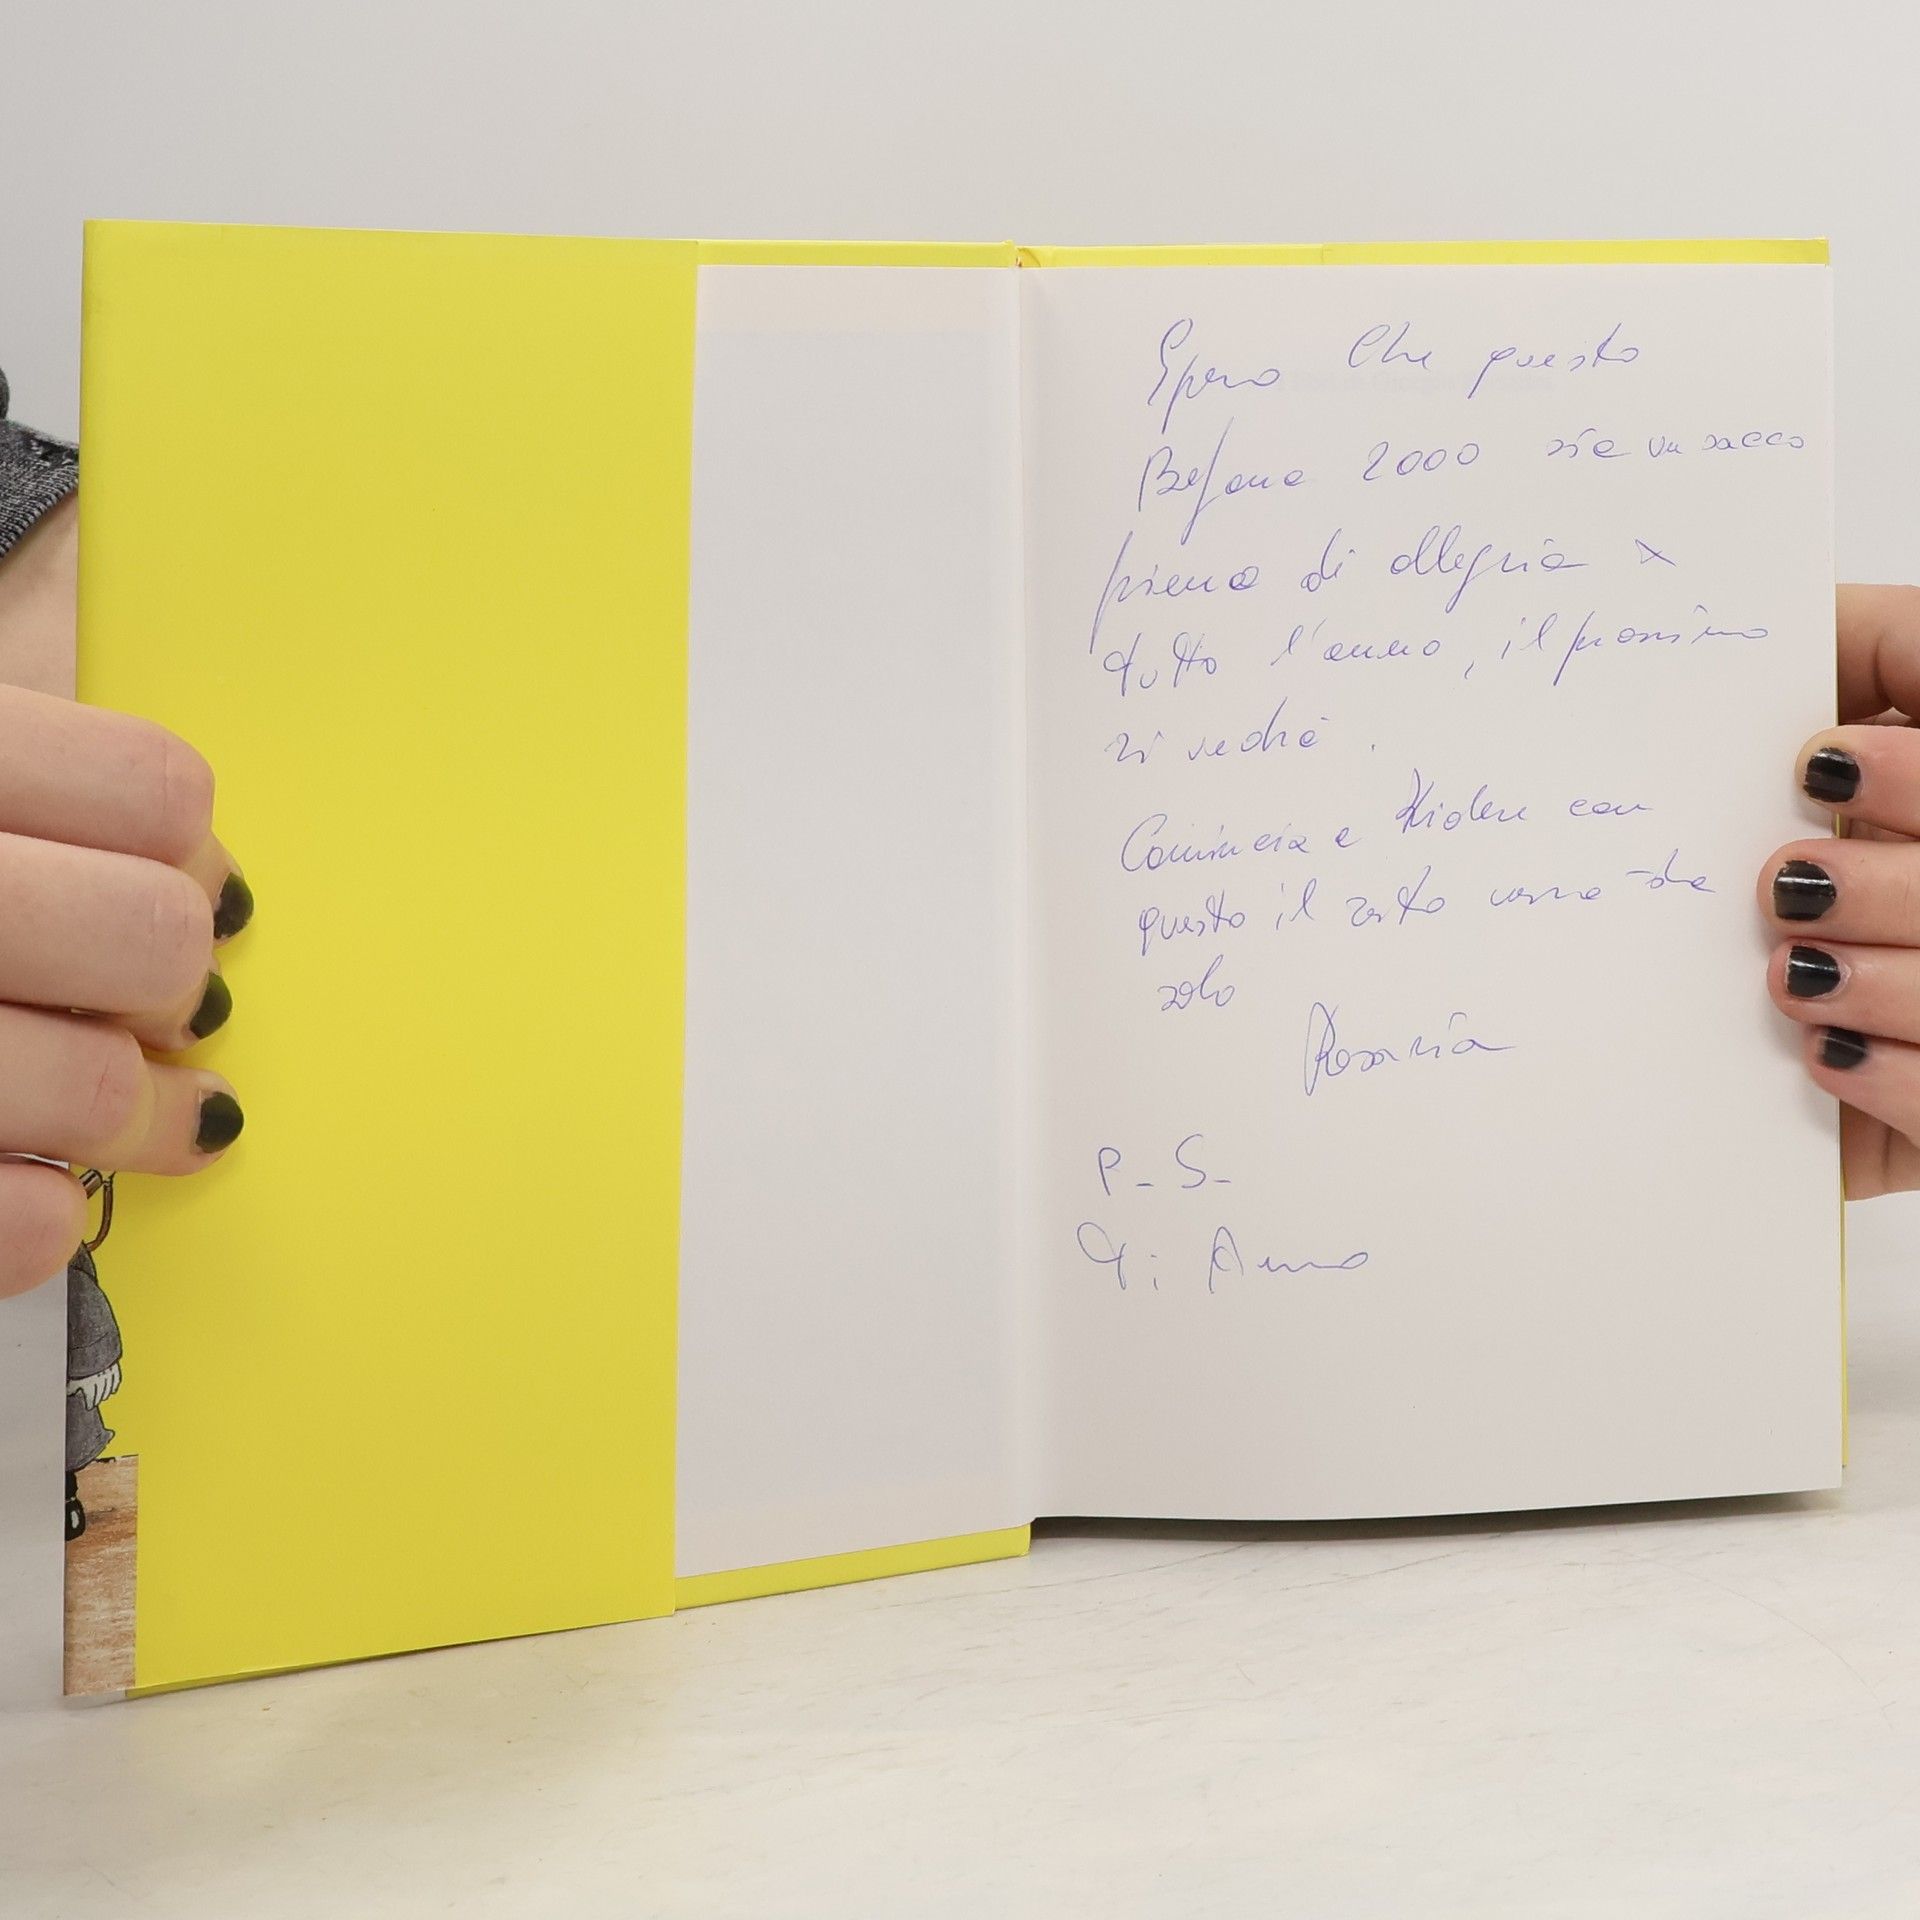 Spero Che questo
Befana 2000 sia un sacco
pieno di allegria x
tutto l'anno, il prossimo
si vedrà.
Comincia a Ridere con
questo il resto verrà da
solo
Rosaria
P-S-
Ti Amo